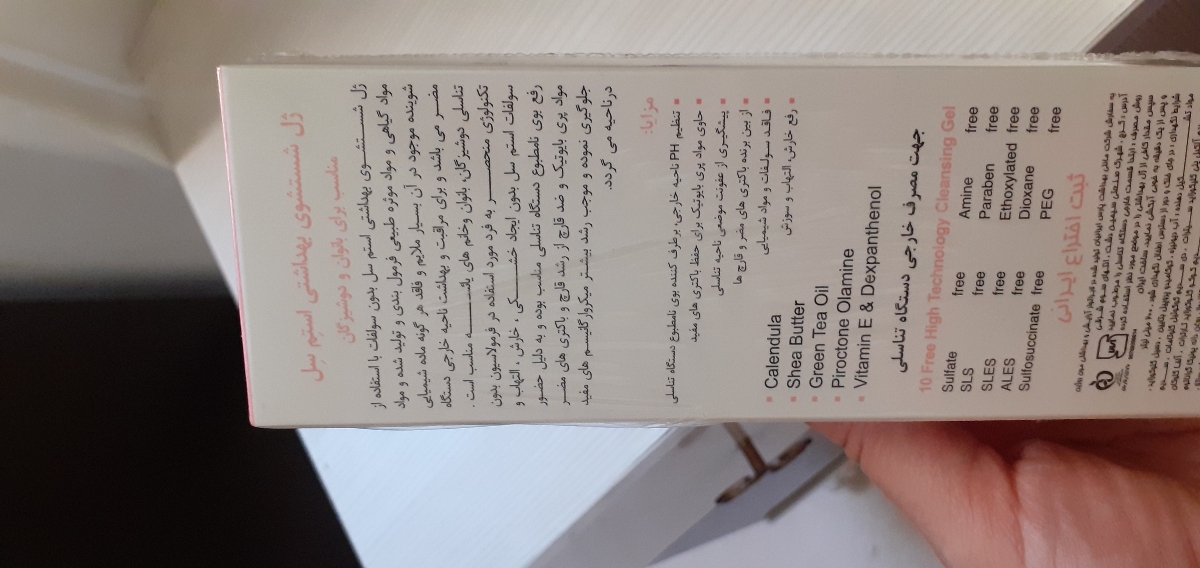 ژل شستشوی بهداشتی استم سل
مناسب برای بانوان و دوشیزگان
ژل شستشوی بهداشتی استم سل بدون سولفات با استفاده از
مواد گیاهی و مواد موثره طبیعی فرمول بندی و تولید شده و مواد
شوینده موجود در آن بسیار ملایم و فاقد هر گونه ماده شیمیایی
مضر می باشد و برای مراقبت و بهداشت ناحیه خارجی دستگاه
تناسلی دوشیزگان، بانوان وخانم های یائسه مناسب است .
تکنولوژی منحصر به فرد مورد استفاده در فرمولاسیون بدون
سولفات استم سل بدون ایجاد خشکی ، خارش، التهاب و
رفع بوی نامطبوع دستگاه تناسلی مناسب بوده و به دلیل حضور
مواد پری بایوتیک و ضد قارچ از رشد قارچ و باکتری های مضر
جلوگیری نموده و موجب رشد بیشتر میکروارگانیسم های مفید
در ناحیه می گردد.
مزایا:
▪ تنظیم PH ناحیه خارجی برطرف کننده بوی نامطبوع دستگاه تناسلی
▪ حاوی مواد پری بایوتیک برای حفظ باکتری های مفید
▪ پیشگیری از عفونت موضعی ناحیه تناسلی
▪ از بین برنده باکتری های مضر و قارچ ها
▪ فاقد سولفات و مواد شیمیایی
▪ رفع خارش، التهاب و سوزش
▪ Calendula
▪ Shea Butter
▪ Green Tea Oil
▪ Piroctone Olamine
▪ Vitamin E & Dexpanthenol
جهت مصرف خارجی دستگاه تناسلی
10 Free High Technology Cleansing Gel
Sulfate free Amine free
SLS free Paraben free
SLES free Ethoxylated free
ALES free Dioxane free
Sulfosuccinate free PEG free
ثبت اختراع ایرانی